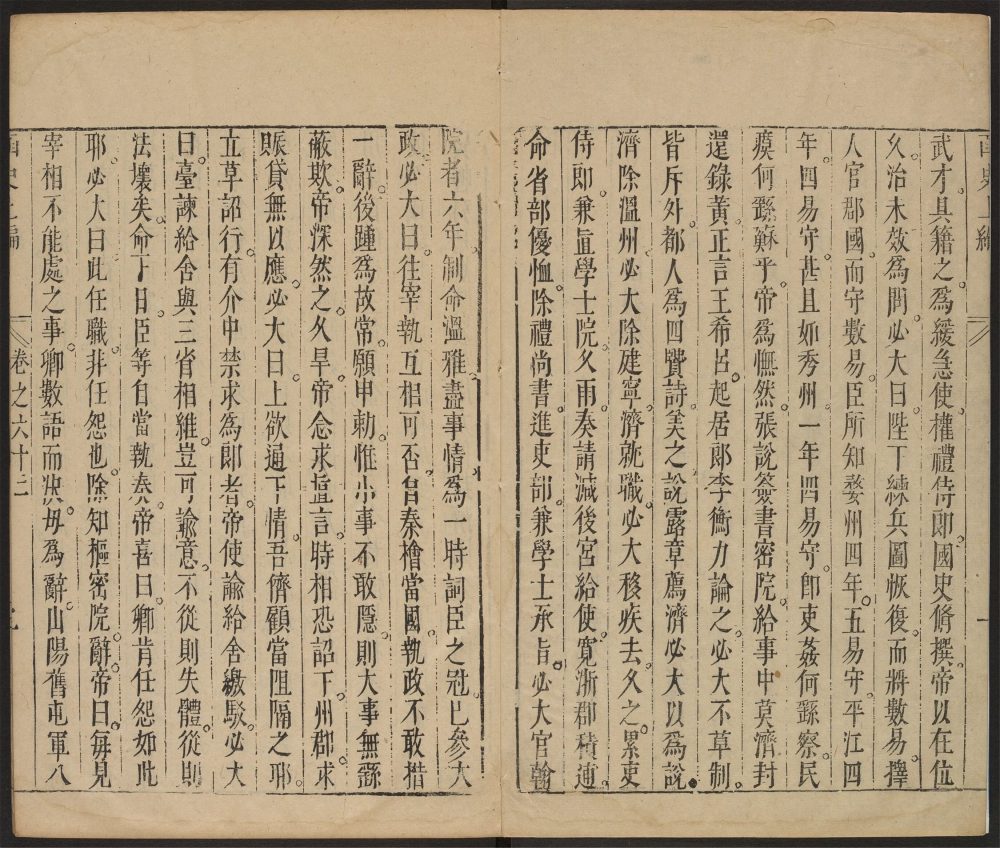 武才具籍之爲緩急使權禮侍郎國史脩撰帝以在位
久治未效爲問必大曰陛下練兵圖恢復而將數易擇
人官郡國而守數易臣所知婺州四年五易守平江四
年四易守甚且如秀州一年四易守卽吏姦何繇察民
瘼何繇蘇乎帝爲憮然張說簽書密院給事中莫濟封
還錄黃正言王希呂起居郎李衡力論之必大不草制
皆斥外都人爲四賢詩美之說露章薦濟必大以爲說
濟除溫州必大除建寧濟就職必大移疾去久之累吏
侍卽兼直學士院久雨奏請減後宮給使寬浙郡積逋
命省部優恤除禮尚書進吏部兼學士承旨必大官翰
院者六年制命溫雅盡事情爲一時詞臣之冠已參大
政必大曰往宰執互相可否自秦檜當國執政不敢措
一辭後踵爲故常願申勅惟小事不敢隱則大事無繇
蔽欺帝深然之久旱帝念求直言時相恐詔下州郡求
賑貸無以應必大曰上欲通下情吾儕顧當阻隔之耶
立草詔行有介中禁求爲郎者帝使諭給舍繳駁必大
曰臺諫給舍與三省相維豈可諭意不從則失體從則
法壞矣命下日臣等自當執奏帝喜曰卿肯任怨如此
耶必大曰此任職非任怨也除知樞密院辭帝曰每見
宰相不能處之事卿數語而決毋爲辭山陽舊屯軍八
卷之六十三